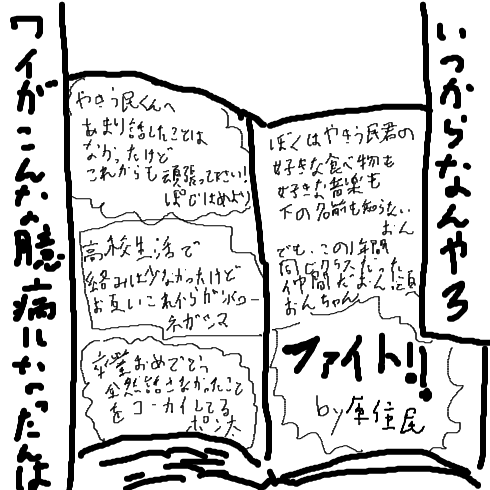 いつからなんやろ
ワイがこんな臆病になったんは
ぼくはやきう民君の
好きな食べ物も
好きな音楽も
下の名前も知らない
おん
でも、この1年間
同じクラスだった
仲間だおん
おんちゃん
ファイト!!
by原住民
やきう民くんへ
あまり話したことは
なかったけど
これからも頑張ってください!
ぽじはめより
高校生活で
絡みは少なかったけど
お互いこれからがんばろー
ネガシマ
卒業おめでとう
全然話さなかったこと
をコーカイしてる
ポン太